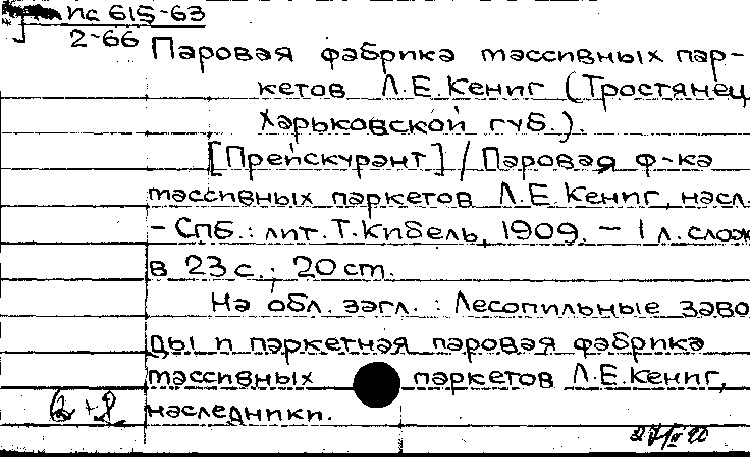 Пс 615-63
2-66
Паровая фабрика массивных пар-
кетов Л.Е.Кениг (Тростянец
Харьковской губ.).
[Прейскурант] / Паровая ф-ка
массивных паркетов Л.Е.Кениг, насл.
- Спб.: лит. Т.Кибель, 1909. - 1 л. слож
в 23 с.; 20 см.
На обл. загл.: Лесопильные заво
ды и паркетная паровая фабрика
массивных паркетов Л.Е.Кениг,
наследники.